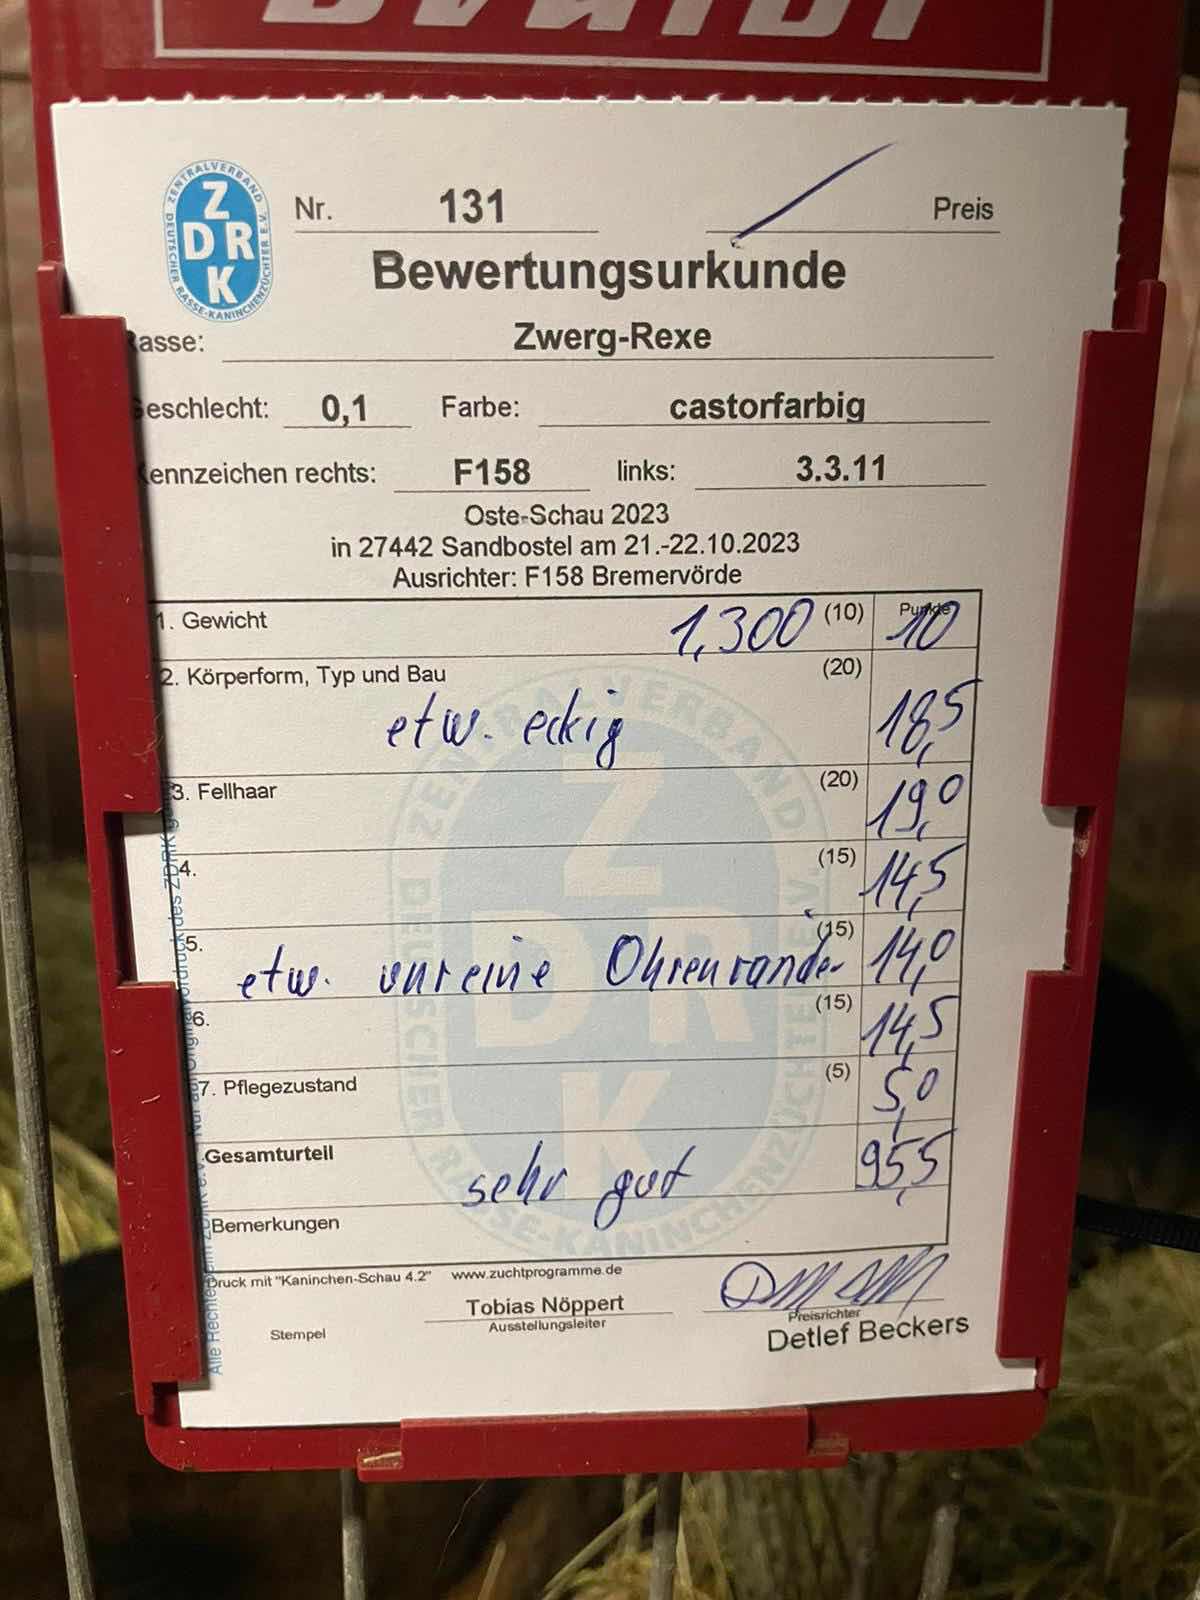 ZENTRALVERBAND DEUTSCHER RASSE-KANINCHENZÜCHTER E.V.
Z
DR
K
Nr. 131 Preis
Bewertungsurkunde
Rasse: Zwerg-Rexe
Geschlecht: 0,1 Farbe: castorfarbig
Kennzeichen rechts: F158 links: 3.3.11
Oste-Schau 2023
in 27442 Sandbostel am 21.-22.10.2023
Ausrichter: F158 Bremervörde
1. Gewicht 1,300 (10) Punkte 10
2. Körperform, Typ und Bau (20)
etw. eckig 18,5
3. Fellhaar (20) 19,0
4. (15) 14,5
5. (15)
etw. unreine Ohrenränder 14,0
6. (15) 14,5
7. Pflegezustand (5) 5,0
Gesamturteil sehr gut 95,5
Bemerkungen
Druck mit "Kaninchen-Schau 4.2" www.zuchtprogramme.de
Tobias Nöppert
Stempel Ausstellungsleiter Preisrichter
Detlef Beckers
ZENTRALVERBAND DEUTSCHER RASSE-KANINCHENZÜCHTER E.V.
Z
DR
K